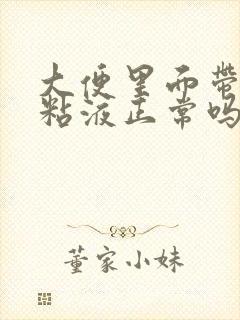 大便里面带
粘液正常吗
董家小妹